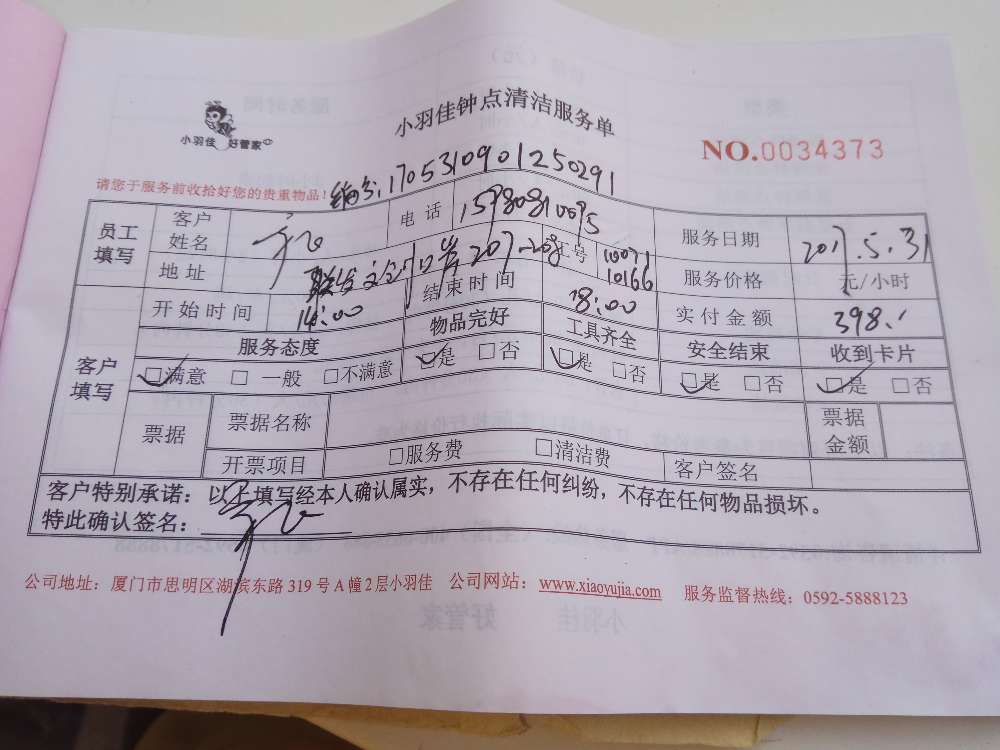 小羽佳钟点清洁服务单
小羽佳 好管家
NO.0034373
请您于服务前收拾好您的贵重物品!
编号:1705310901250291
员工填写 客户姓名 电话 15980810095 服务日期 2017.5.31
地址 207-208 工号 10071 10166 服务价格 元/小时
开始时间 14:00 结束时间 18:00 实付金额 398.
客户填写 服务态度 物品完好 工具齐全 安全结束 收到卡片
□满意 □一般 □不满意 □是 □否 □是 □否 □是 □否 □是 □否
票据 票据名称 票据金额
开票项目 □服务费 □清洁费 客户签名
客户特别承诺:以上填写经本人确认属实,不存在任何纠纷,不存在任何物品损坏。
特此确认签名:
公司地址:厦门市思明区湖滨东路319号A幢2层小羽佳 公司网站:www.xiaoyujia.com 服务监督热线:0592-5888123